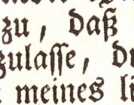 zu, daß
zulaſſe, d
meines li